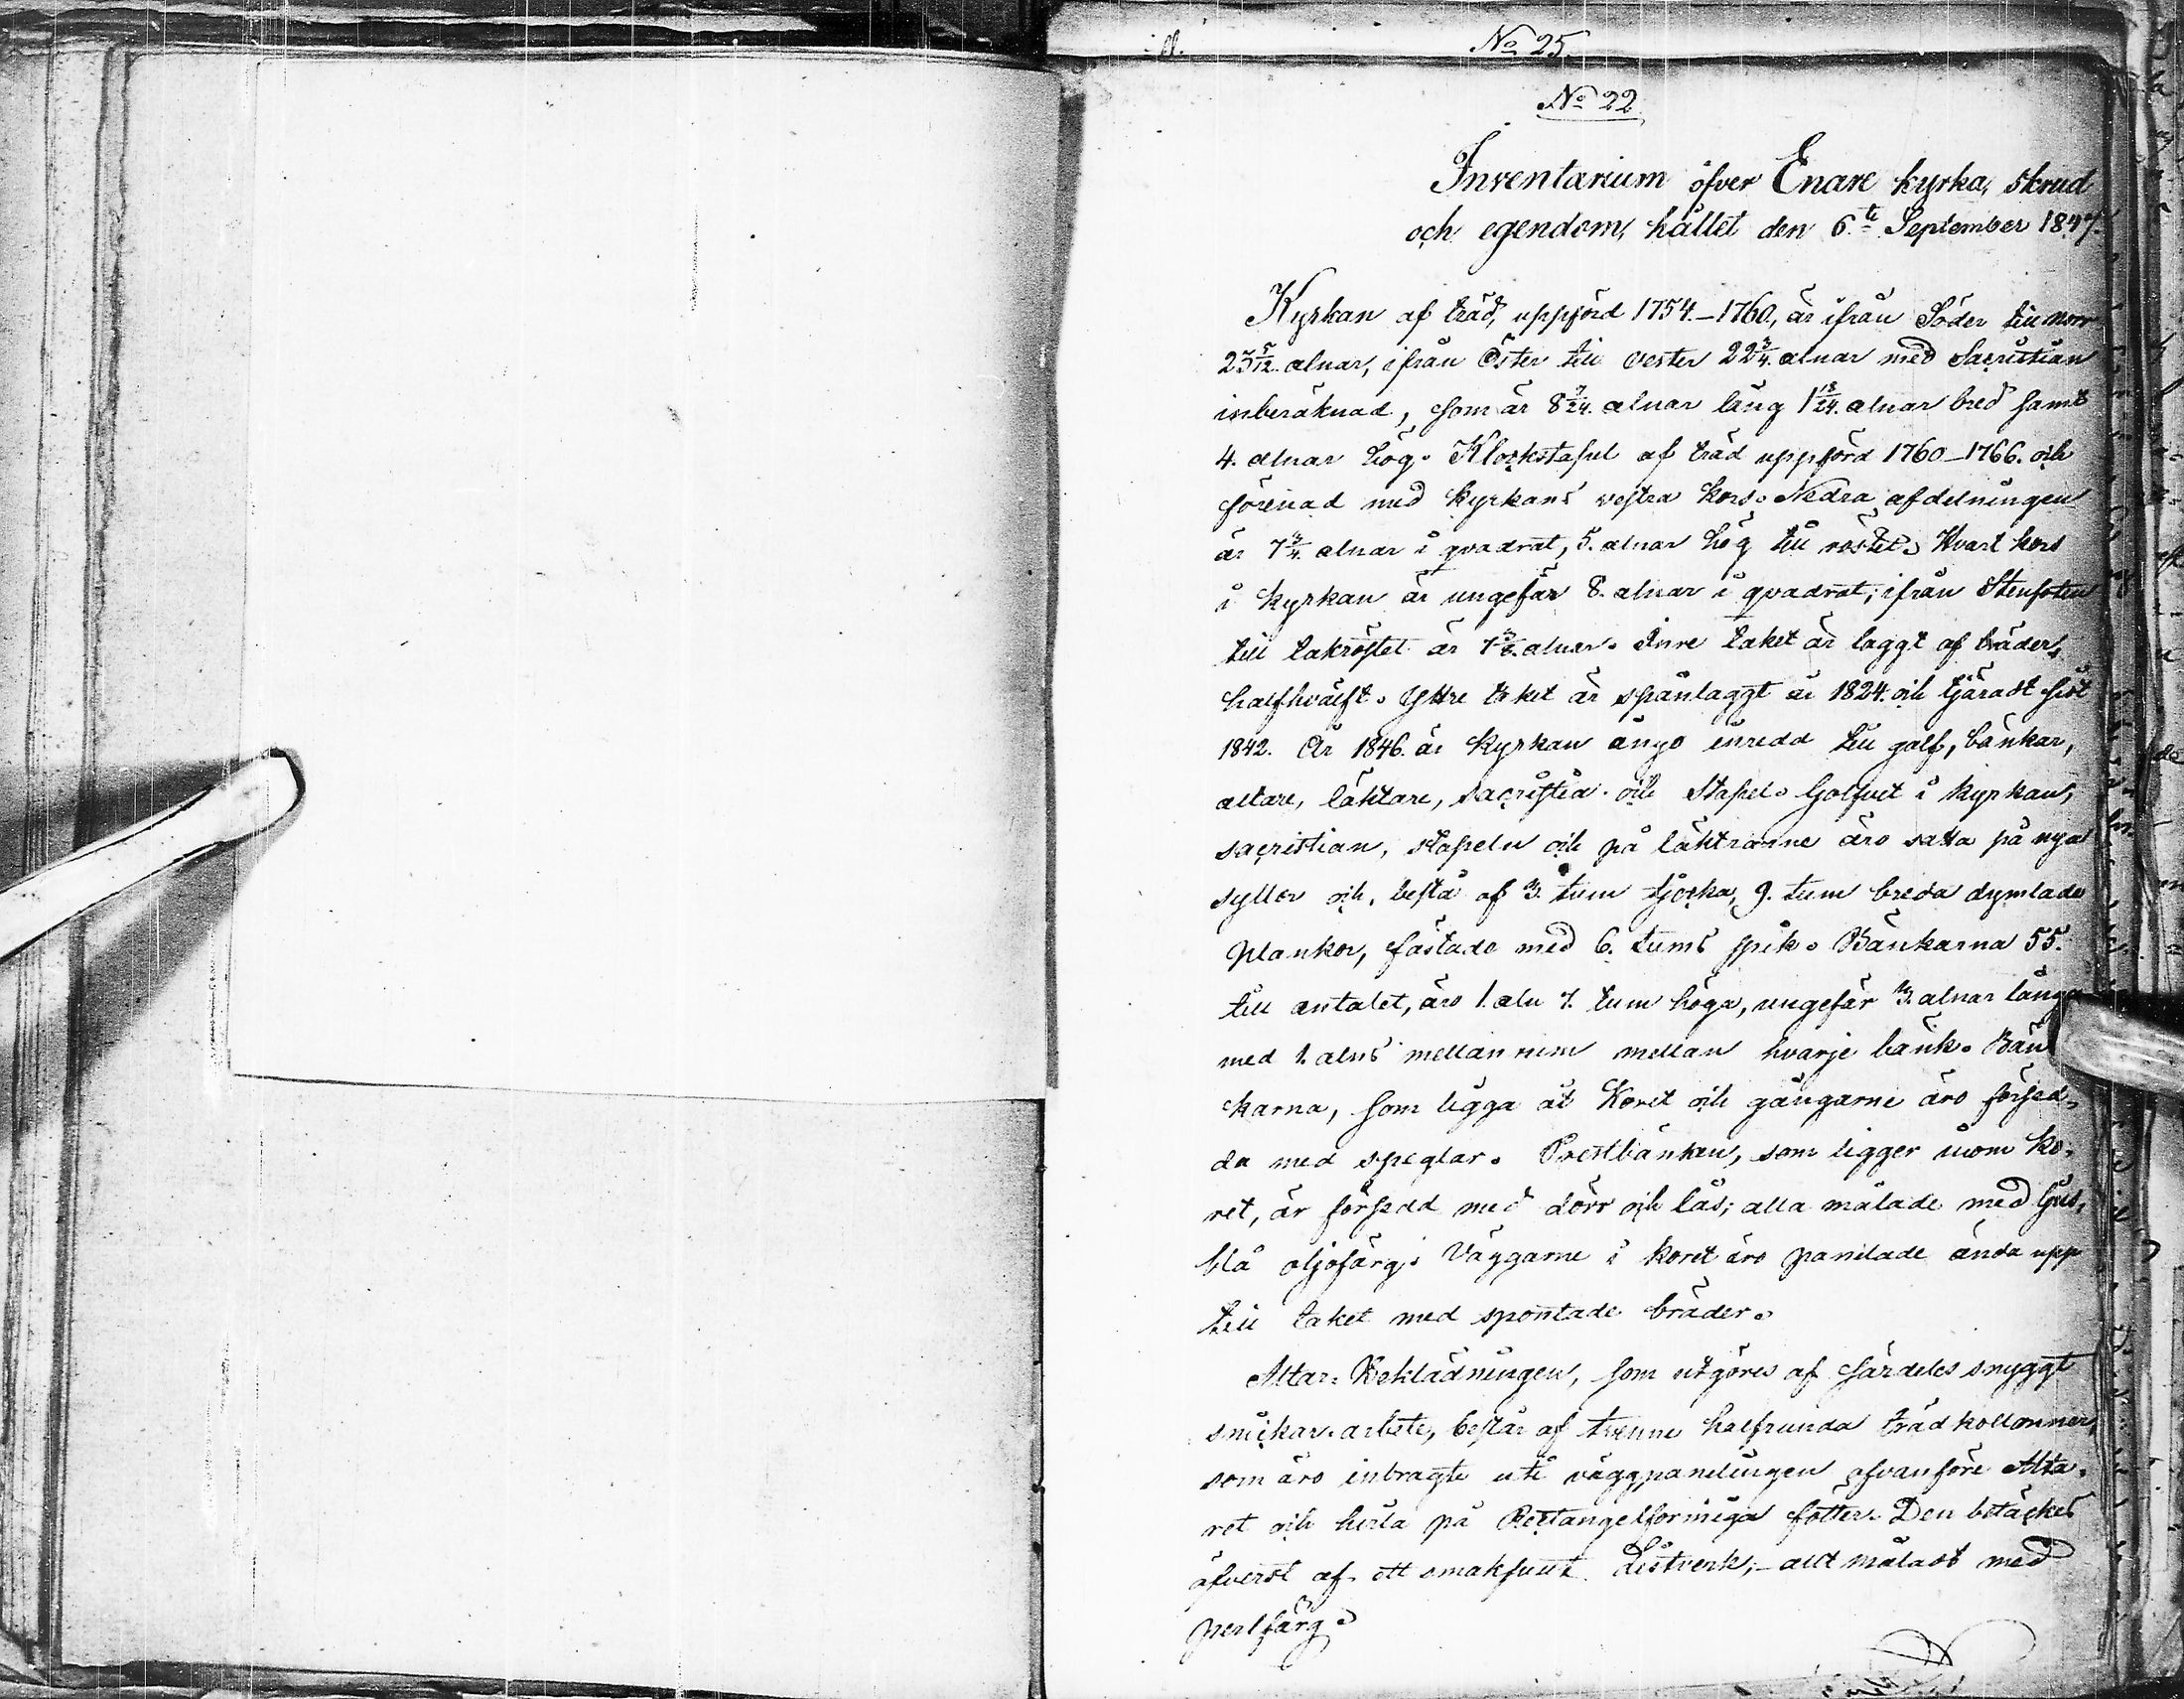 No 25.
No 22
Inventarium öfver Enare kyrka, skrud
och egendom, hållet den 6te September 1847.
Kyrkan af träd, uppförd 1754–1760, är ifrån Söder till norr
23 5/12. alnar, ifrån Öster till vester 22 3/4. alnar med Sacristian
inberäknad, som är 8 7/24. alnar lång alnar bred samt
4. alnar hög. Klockstapel af träd uppförd 1760–1766. och
förenad med kyrkans vestra kors. Nedra afdelningen
är 7 3/4. alnar i qvadrat, 5. alnar hög till röstet. Hvart kors
i kyrkan är ungefär 8. alnar i qvadrat; ifrån Stenfoten
till takröstet är alnar. Inre taket är laggt af bräder,
halfhvälft. Yttre taket är spånlaggt år 1824. och tjäradt sist
1842. År 1846. är kyrkan ånyo inredd till golf, bänkar,
altare, läktare, sacristia och Stapel. Golfvet i kyrkan,
sacristian, stapeln och på läktrarne äro satta på nya
syllor och bestå af 3. tum tjocka, 9. tum breda dymlade
plankor, fästade med 6. tums spik. Bänkarna 55.
till antalet, äro 1. aln 7. tum höga, ungefär 3. alnar långa
med 1. alns mellanrum mellan hvarje bänk. Bän
karna, som ligga åt Koret och gångarne äro försed-
da med speglar. Prestbänken, som ligger inom ko-
ret, är försedd med dörr och lås; alla målade med ljus-
blå oljofärg. Väggarne i koret äro panelade ända upp
till taket med spontade bräder.
Altar-Beklädningen, som utgöres af särdeles snyggt
snickar-arbete, består af tvenne halfrunda trädkollonner,
som äro inbragte uti väggpanelingen ofvanföre Alta-
ret och hvila på Rectangelformiga fötter. Den betäckes
öfverst af ett smakfullt Listverk; – allt måladt med
perlfärg.